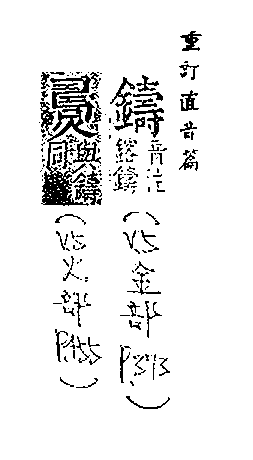 重訂直音篇
鑄 音注 鎔鑄 (V.5 金部 P.343)
與鑄同 (V.5 火部